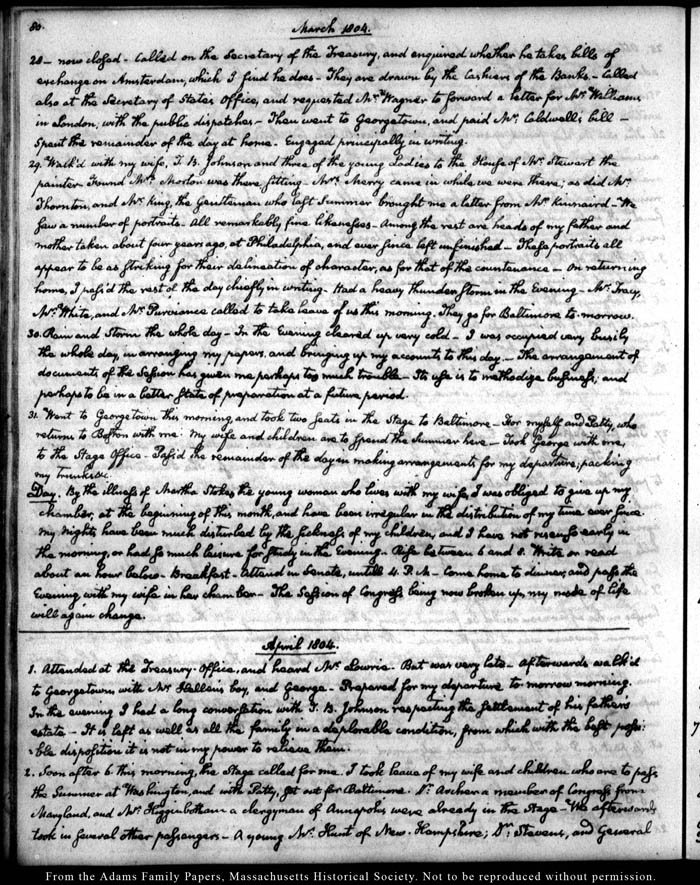 80.
March 1804.
28 — now closed — Called on the Secretary of the Treasury, and enquired whether he takes bills of
exchange on Amsterdam, which I find he does — They are drawn by the Cashiers of the Banks — Called
also at the Secretary of State's Office, and requested Mr. Wagner to forward a letter for Mr. Williams
in London, with the public dispatches — Then went to Georgetown, and paid Mr. Caldwell's bill —
Spent the remainder of the day at home. Engaged principally in writing.
29. Walk'd with my wife, T. B. Johnson and three of the young Ladies to the House of Mr. Stewart the
painter — Found Mrs. Morton was there, sitting — Mrs. Merry came in while we were there; as did Mr.
Thornton, and Mr. King, the Gentleman who last Summer brought me a letter from Mr. Kinnaird — We
saw a number of portraits. All remarkably fine likenesses — Among the rest are heads of my father and
mother taken about four years ago, at Philadelphia, and ever since left unfinished — These portraits all
appear to be as striking for their delineation of character, as for that of the countenance — On returning
home, I pass'd the rest of the day chiefly in writing. Had a heavy thunder storm in the Evening — Mr. Tracy,
Mr. White, and Mr. Purviance called to take leave of us this morning. They go for Baltimore to-morrow.
30. Rain and Storm the whole day — In the Evening cleared up very cold — I was occupied very busily
the whole day, in arranging my papers, and bringing up my accounts to this day. — The arrangement of
documents of the Session has given me perhaps too much trouble — Its use is to methodize business; and
perhaps to be in a better state of preparation at a future period.
31. Went to Georgetown this morning, and took two seats in the Stage to Baltimore — For myself and Patty, who
returns to Boston with me. My wife and children are to spend the Summer here — Took George with me,
to the Stage Office — Pass'd the remainder of the day in making arrangements for my departure; packing
my trunks &c.
Day. By the illness of Martha Stokes the young woman who lives with my wife, I was obliged to give up my
chamber, at the beginning of this month, and have been irregular in the distribution of my time ever since
my nights have been much disturbed by the sickness of my children, and I have not risen so early in
the morning, or had so much leisure for study in the Evening. Rise between 6 and 8. Write or read
about an hour before Breakfast — Attend in Senate, untill 4. P.M — Come home to dinner, and pass the
Evening with my wife in her chamber — The Session of Congress being now broken up, my mode of life
will again change.
April 1804.
1. Attended at the Treasury-Office, and heard Mr. Lowrie. But was very late — Afterwards walk'd
to Georgetown with Mr. Hellen's boy, and George — Prepared for my departure to morrow morning.
In the evening I had a long conversation with T. B. Johnson respecting the settlement of his father's
estate — It is left as well as all the family in a deplorable condition, from which with the best possi-
-ble disposition it is not in my power to relieve them.
2. Soon after 6 this morning, the Stage called for me. I took leave of my wife and children who are to pass
the Summer at Washington, and with Patty, set out for Baltimore. Dr. Archer a member of Congress from
Maryland, and Mr. Higginbotham a clergyman of Annapolis were already in the Stage — We afterwards
took in several other passengers — A young Mr. Hunt of New-Hampshire; Dr. Stevens, and General
From the Adams Family Papers, Massachusetts Historical Society. Not to be reproduced without permission.